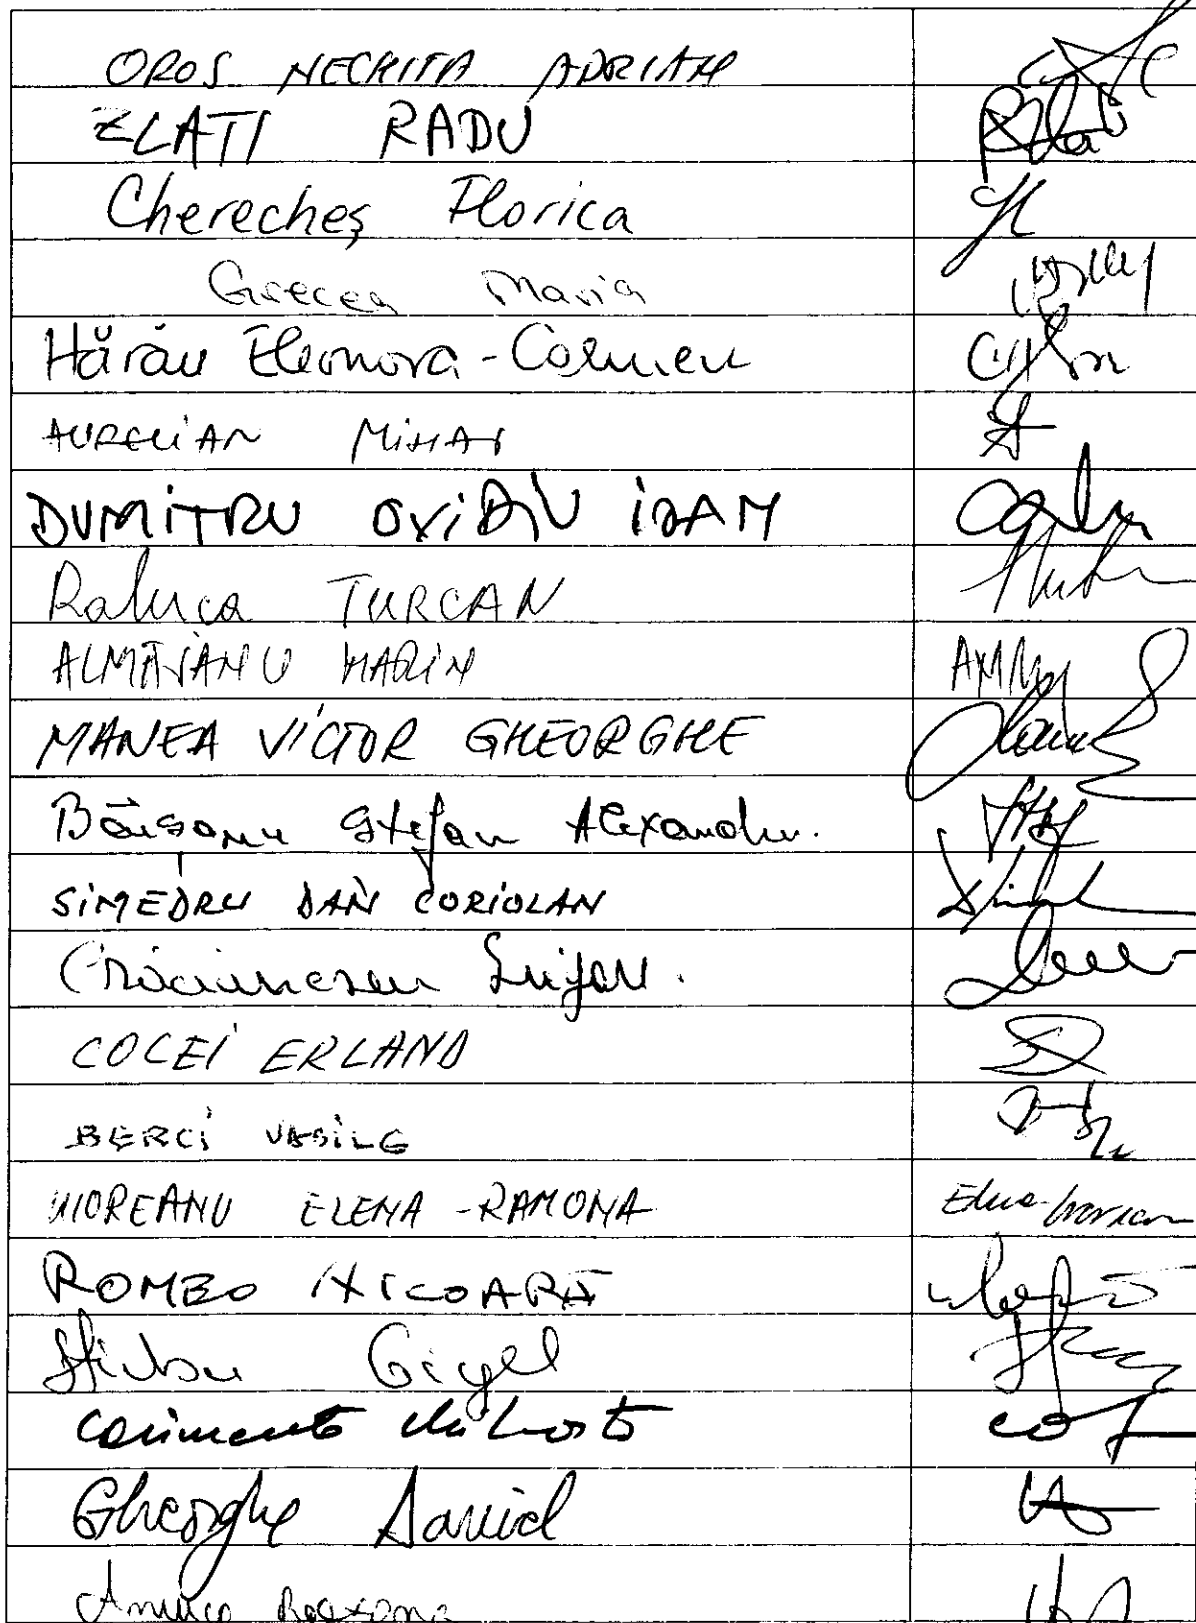 OROS NECHITA ADRIAN
ZLATI RADU
Cherecheș Florica
Grecea Maria
Hărău Eleonora-Carmen
AURELIAN MIHAI
DUMITRU OVIDIU IOAN
Raluca TURCAN
ALMĂJANU MARIN
MANEA VICTOR GHEORGHE
Băișanu Ștefan Alexandru.
SIMEDRU DAN CORIOLAN
COCEI ERLAND
BERCI VASILE
UIOREANU ELENA-RAMONA
ROMEO NICOARĂ
Știrbu Gigel
Gheorghe Daniel
Roxana